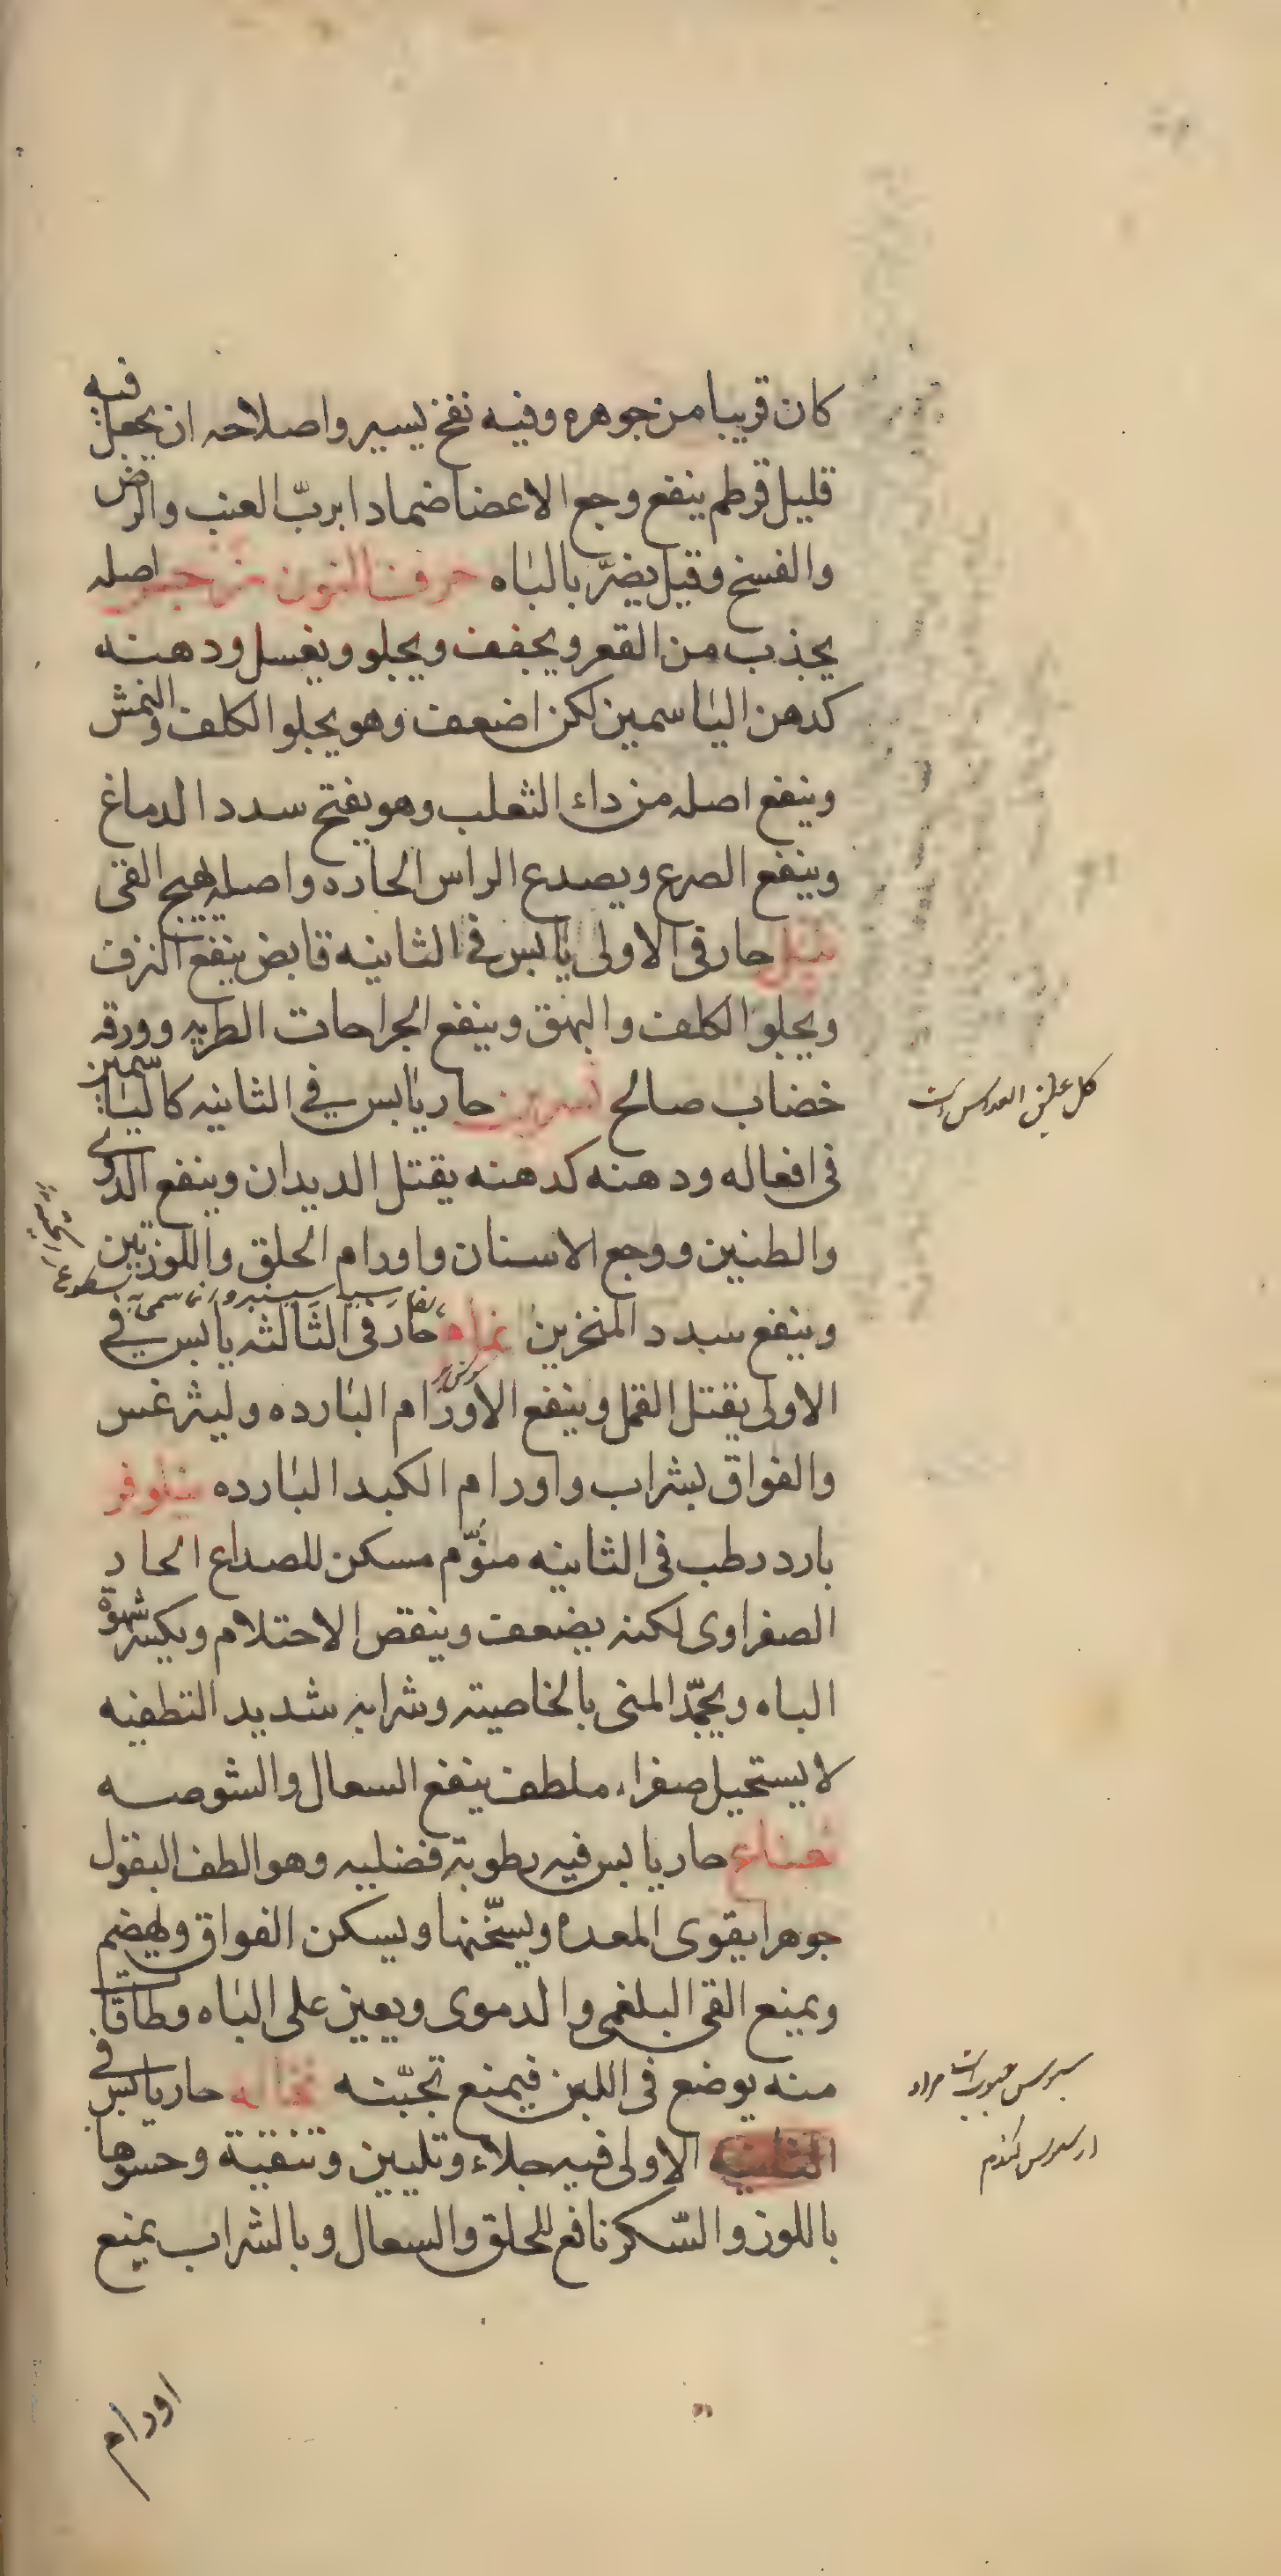 كان قريبا من جوهره وفيه نفخ يسير واصلاحه ان يجعل فيه
قليل قرطم ينفع وجع الاعضا ضمادا بربّ العنب والرض
والفسخ وقيل يضرّ بالباه حرف النون نرجس اصله
يجذب من القعر ويجفف ويجلو ويغسل ودهنه
كدهن الياسمين لكن اضعف وهو يجلو الكلف والنمش
وينفع اصله من داء الثعلب وهو يفتح سدد الدماغ
وينفع الصرع ويصدع الراس الحاره واصله يهيج القى
نيل حار فى الاولى يابس فى الثانيه قابض ينفع النزف
ويجلو الكلف والبهق وينفع الجراحات الطريه وورقه
خضاب صالح نسرين حار يابس في الثانيه كالياسمين
فى افعاله ودهنه كدهنه يقتل الديدان وينفع الدوى
والطنين ووجع الاسنان واورام الحلق واللوزتين
وينفع سدد المنخرين نمام حار فى الثالثه يابس في
الاولى يقتل القمل وينفع الاورام البارده وليثرغس
والفواق بشراب واورام الكبد البارده نيلوفر
بارد رطب فى الثانيه منوّم مسكن للصداع الحار
الصفراوى لكنه يضعف وينقص الاحتلام ويكسر شهوة
الباه ويجمّد المنى بالخاصيته وشرابه شديد التطفيه
لا يستحيل صفراء ملطف ينفع السعال والشوصه
نعناع حار يابس فيه رطوبة فضليه وهو الطف البقول
جوهرا يقوى المعده ويسخّنها ويسكن الفواق ويهضم
ويمنع القى البلغمى والدموى ويعين على الباه وطاقا
منه يوضع فى اللبن فيمنع تجبّنه نخاله حار يابس فى
الثانيه الاولى فيه جلاء وتليين وتنقية وحسوها
باللوز والسّكر نافع للحلق والسعال وبالشراب يمنع
اورام